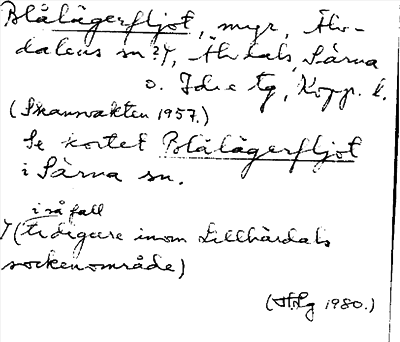 Blålägerfljot, myr, Älv-
dalens sn ?Y, Älvdals, Särna
o. Idre tg, Kopp. l.
(Skansvakten 1957.)
Se kortet Blålägerfljot
i Särna sn.
i så fall
Y(tidigare inom Lillhärdals
sockenområde)
(1980.)